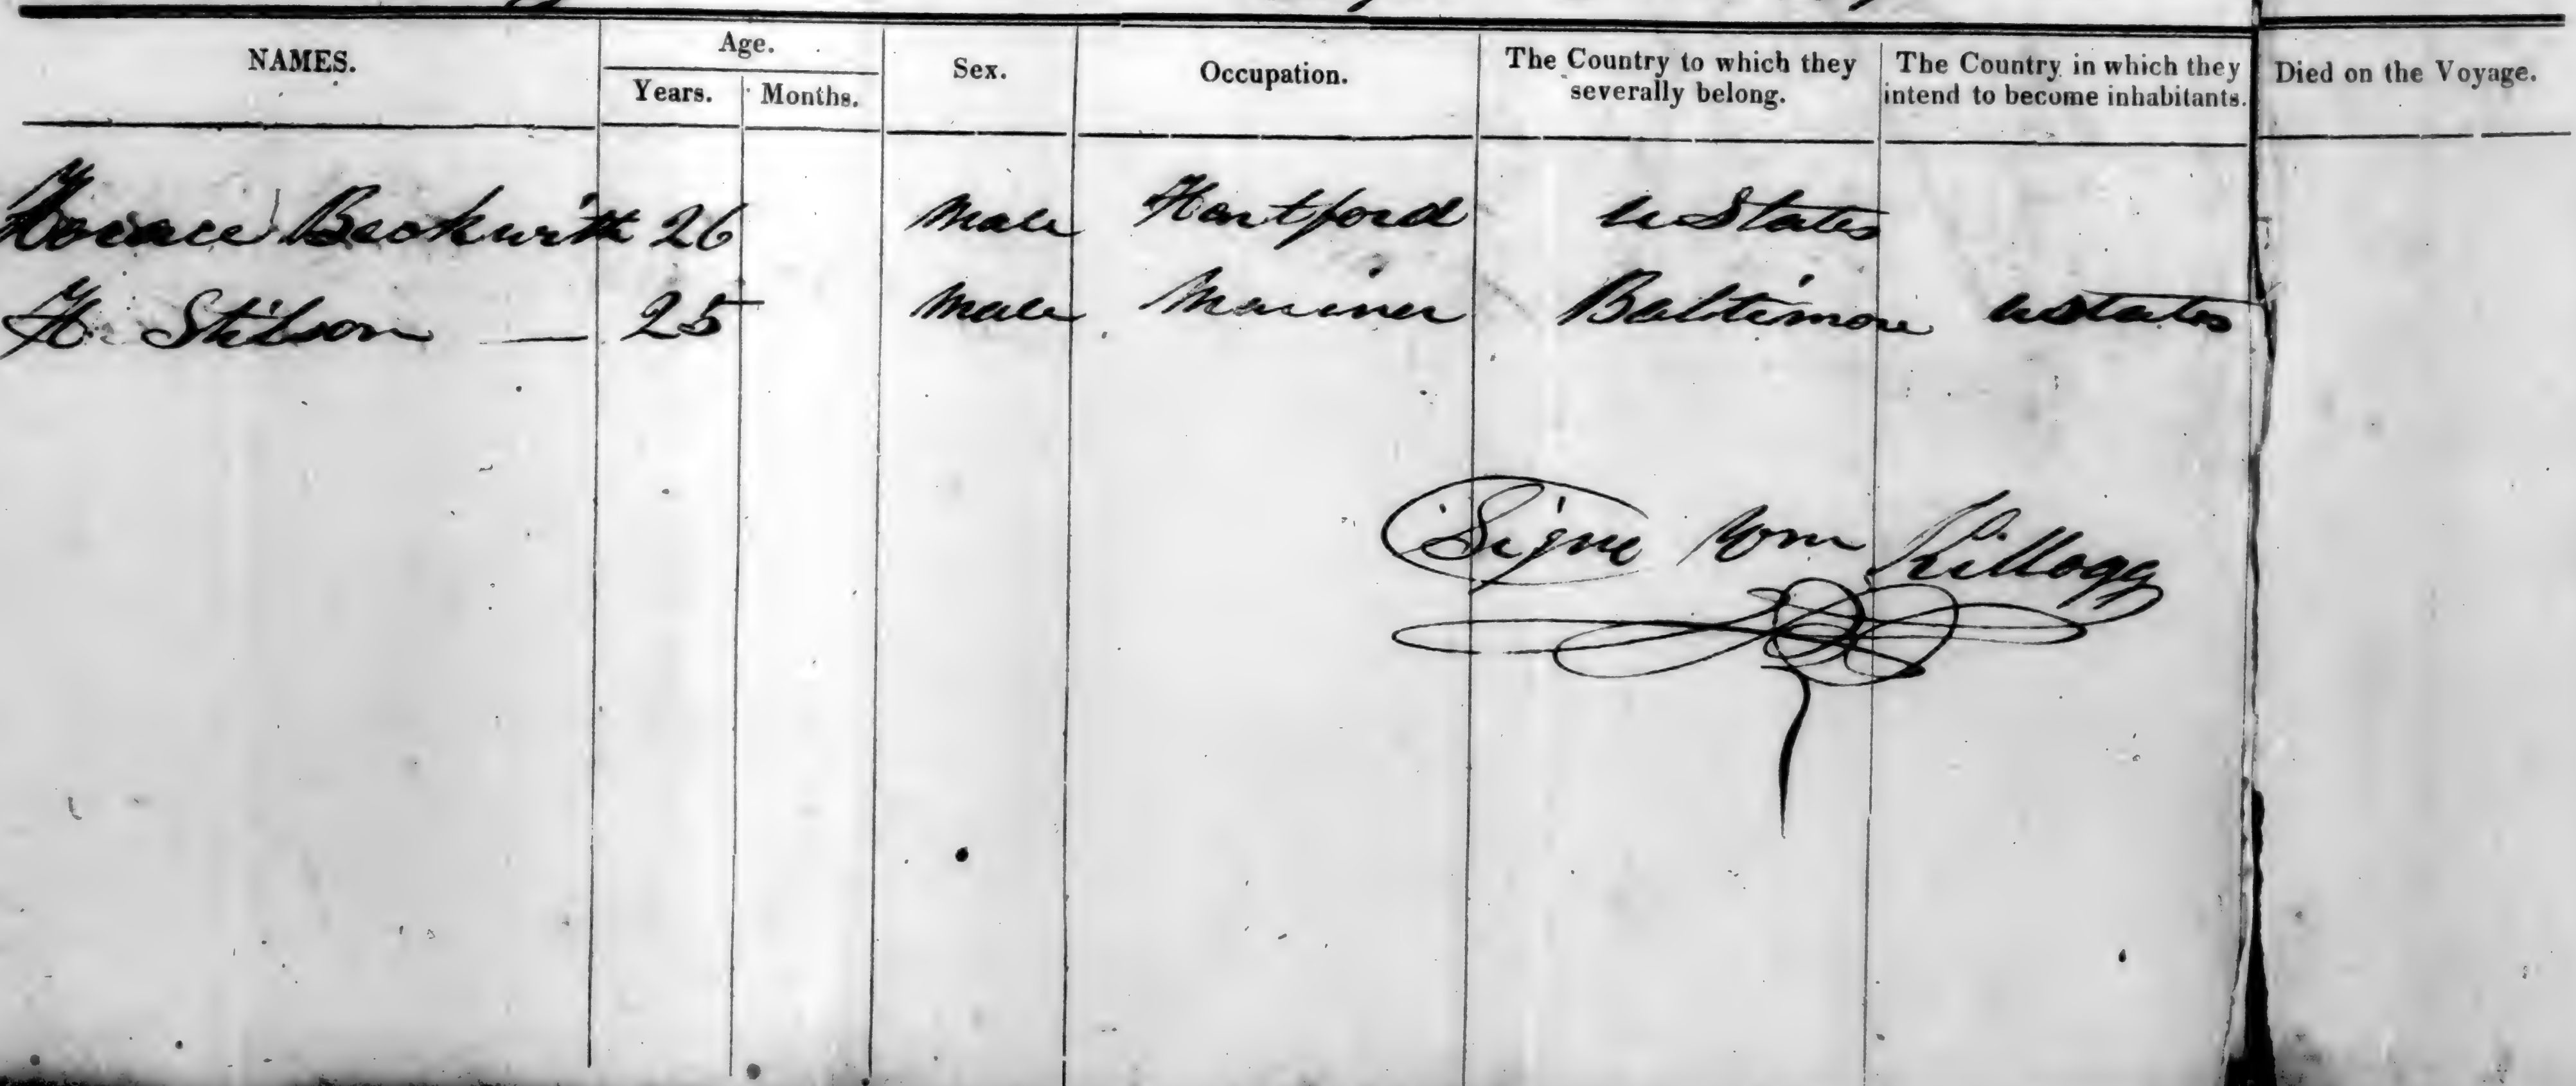 NAMES. Age. Sex. Occupation. The Country to which they severally belong. The Country in which they intend to become inhabitants. Died on the Voyage.
Years. Months.
Horace Beckwith 26 Male Hartford UStates
H. Stilson — 25 Male Mariner Baltimore UStates
Signe Wm Killogg